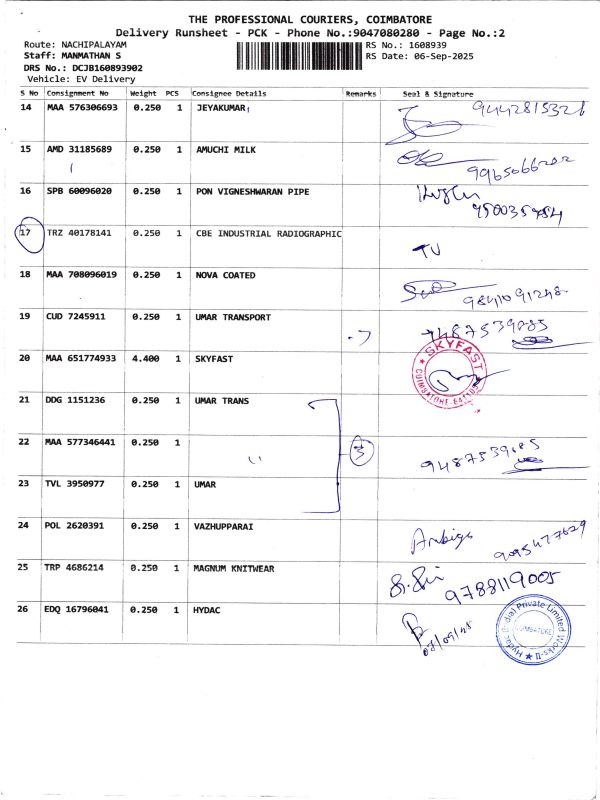 THE PROFESSIONAL COURIERS, COIMBATORE
Delivery Runsheet - PCK - Phone No.:9047080280 - Page No.:2
Route: NACHIPALAYAM RS No.: 1608939
Staff: MANMATHAN S RS Date: 06-Sep-2025
DRS No.: DCJB160893902
Vehicle: EV Delivery
S No Consignment No Weight PCS Consignee Details Remarks Seal & Signature
14 MAA 576306693 0.250 1 JEYAKUMAR 9442815321
15 AMD 31185689 0.250 1 AMUCHI MILK
16 SPB 60096020 0.250 1 PON VIGNESHWARAN PIPE
17 TRZ 40178141 0.250 1 CBE INDUSTRIAL RADIOGRAPHIC
18 MAA 708096019 0.250 1 NOVA COATED 9841091248
19 CUD 7245911 0.250 1 UMAR TRANSPORT 9487539085
20 MAA 651774933 4.400 1 SKYFAST SKYFAST
21 DDG 1151236 0.250 1 UMAR TRANS
22 MAA 577346441 0.250 1 " 3 9487539085
23 TVL 3950977 0.250 1 UMAR
24 POL 2620391 0.250 1 VAZHUPPARAI 9095477629
25 TRP 4686214 0.250 1 MAGNUM KNITWEAR 9788119005
26 EDQ 16796041 0.250 1 HYDAC Hydac (India) Private Limited Works-II COIMBATORE